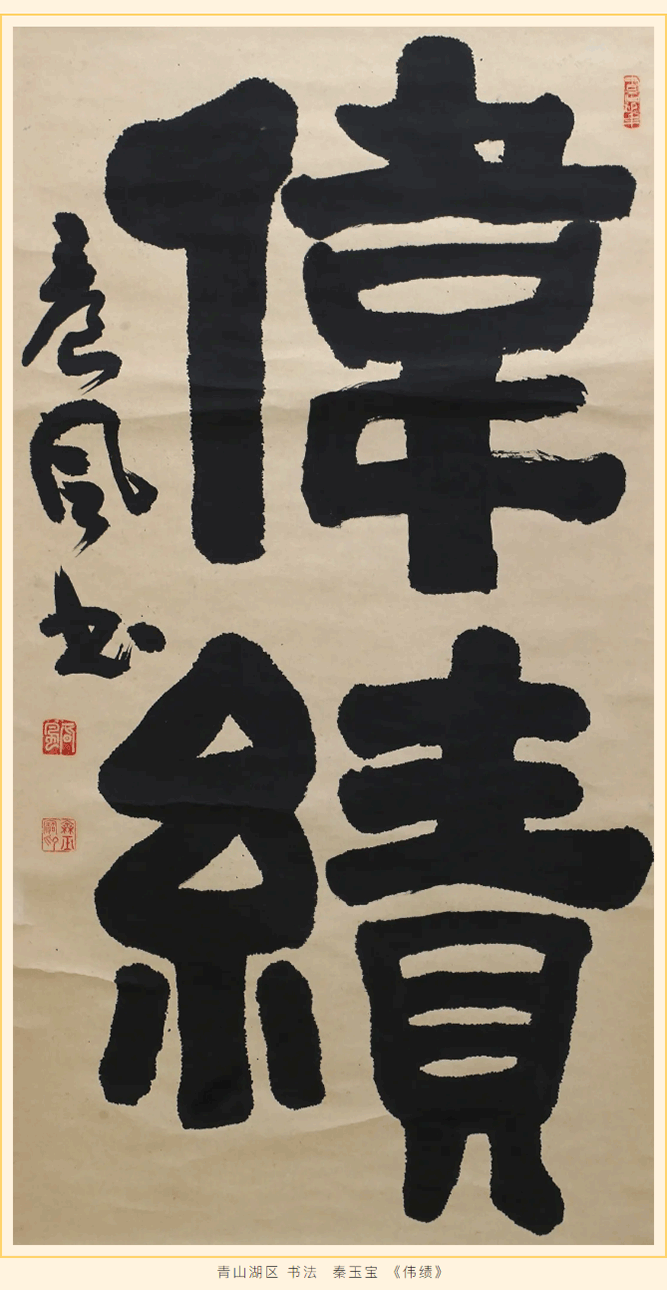 偉績
風书
青山湖区 书法 秦玉宝 《伟绩》